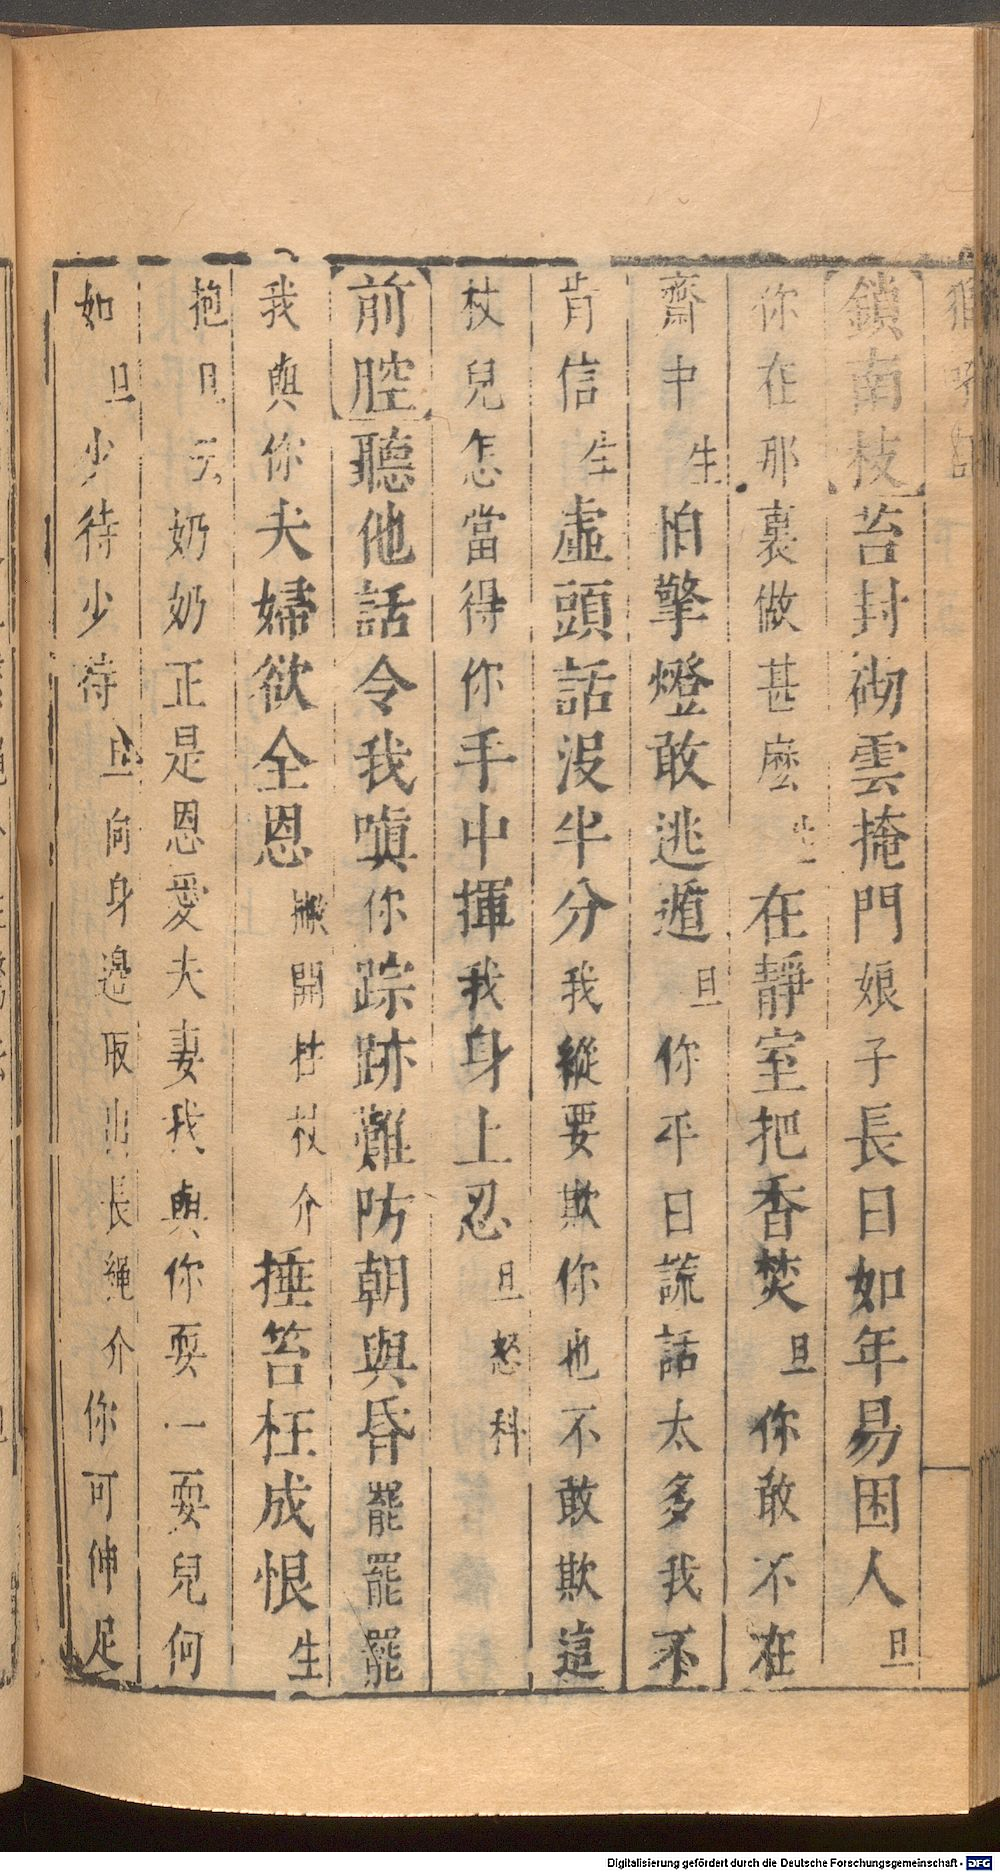 鎖南枝苔封砌雲掩門娘子長日如年易困人旦
你在那裏做甚麽生在靜室把香焚旦你敢不在
齋中生怕擎燈敢逃遁旦你平日謊話太多我不
肯信生虛頭話沒半分我縱要欺你也不敢欺這
杖兒怎當得你手中揮我身上忍旦怒科
前腔聽他話令我嗔你踪跡難防朝與昏罷罷罷
我與你夫婦欲全恩撇開拄杖介捶笞枉成恨生
抱旦云奶奶正是恩愛夫妻我與你耍一耍兒何
如旦少待少待旦向身邊取出長繩介你可伸足
Digitalisierung gefördert durch die Deutsche Forschungsgemeinschaft - DFG